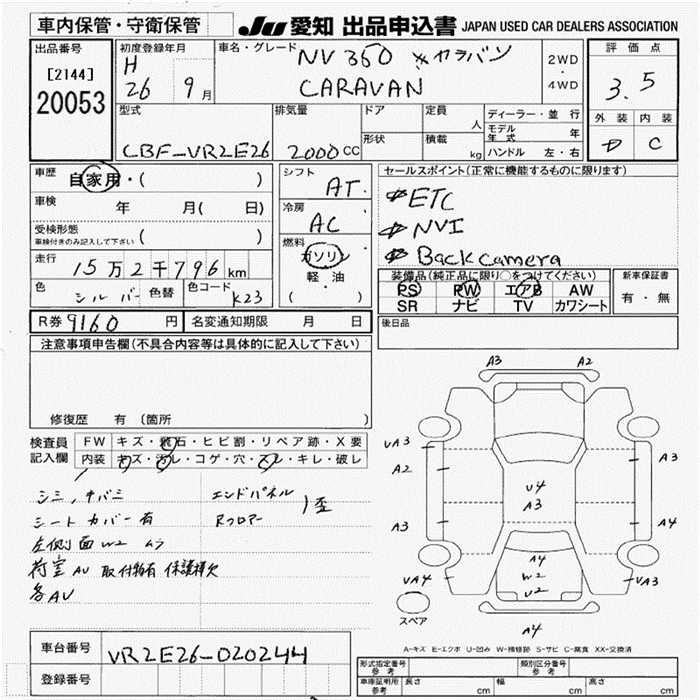 車内保管・守衛保管
JU 愛知 出品申込書 JAPAN USED CAR DEALERS ASSOCIATION
出品番号
[2144]
20053
初度登録年月
H
26 9月
車名・グレード
NV350 ※キャラバン
CARAVAN
2WD
・
4WD
評価点
3.5
外装 内装
D C
型式
CBF-VR2E26
排気量
2000cc
ドア
形状
定員
人
積載
kg
ディーラー・並行
モデル年式 年
ハンドル 左・右
車歴
自家用・( )
車検
年 月( 日)
受検形態
車検付きのみ記入して下さい ( )
走行
15万2千796km
色
シルバー
色替
色コード
K23
シフト
AT.
冷房
AC
燃料
ガソリン
軽・油
( )
セールスポイント(正常に機能するものに限ります)
ETC
NVI
Back camera
装備品(純正品に限り○をつけてください)
PS PW エアB AW
SR ナビ TV カワシート
新車保証書
有・無
R券 9160 円
名変通知期限 月 日
後日品
注意事項申告欄(不具合内容等は具体的に記入して下さい)
修復歴 有 〔箇所
検査員
記入欄
FW キズ・飛石・ヒビ割・リペア跡・X要
内装 キズ・汚レ・コゲ・穴・スレ・キレ・破レ
シミ,ナバミ
シートカバー有
左側面 W2 ムラ
荷室AU 取付物有 保護棒欠
各AU
エンドパネル
Rフロアー
歪
A3 A2
UA3
A2
A3
UA4
A3
A4
UA3
U4
A3
A4
W2
U2
A4
スペア
A-キズ E-エクボ U-凹み W-補修跡 S-サビ C-腐食 XX-交換済
車台番号
VR2E26-020244
登録番号
形式指定番号
参考
類別区分番号
車庫証明所
参考
長さ cm
幅 cm
高さ cm